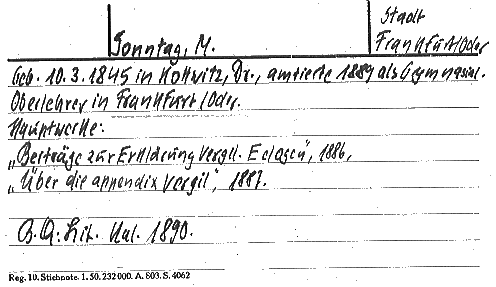 Stadt
Sonntag, M. Frankfurt/Oder
Geb. 10.3.1845 in Kottwitz, Dr., amtierte 1889 als Gymnasial.
Oberlehrer in Frankfurt/Oder.
Hauptwerke:
„Beiträge zur Erklärung Vergil. Eclogen", 1886,
„Über die appendix Vergil", 1887.
B.Q: Lit. Kal. 1890.
Reg. 10. Stichnote. 1. 50. 232 000. A. 803. S. 4062